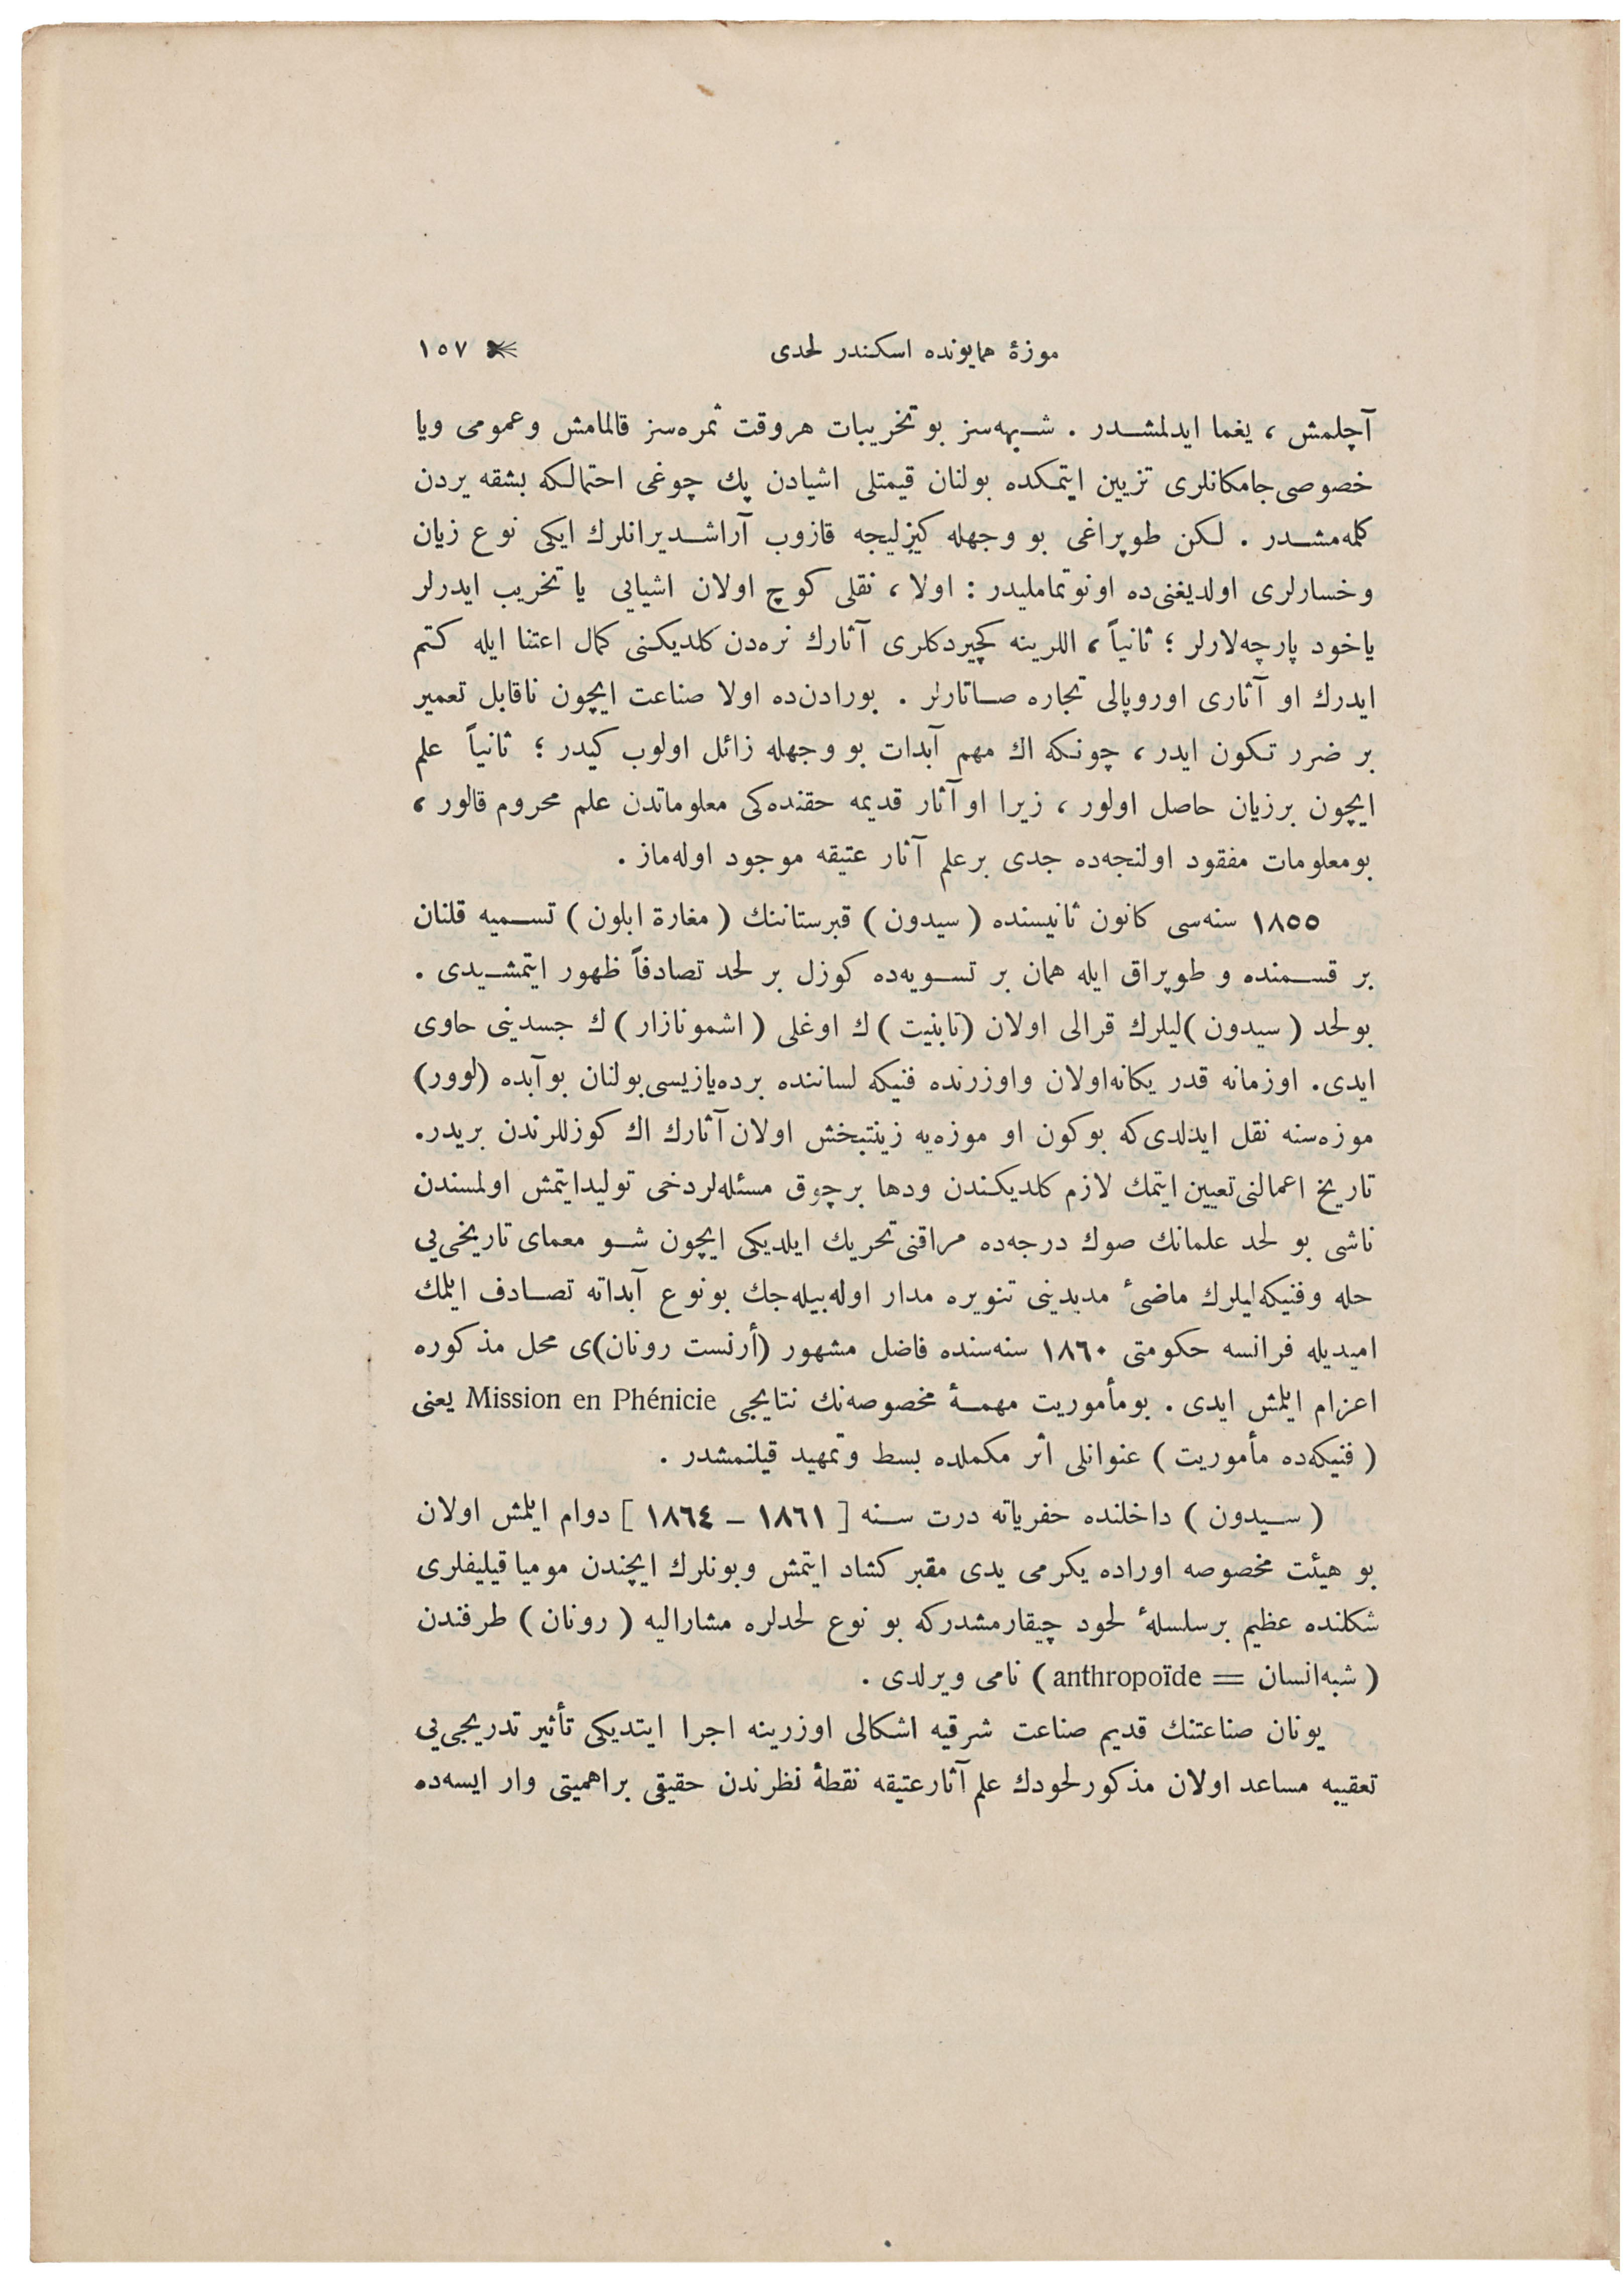 موزهٔ همایونده اسکندر لحدی ١٥٧
آچلمش ، یغما ایدلمشدر . شبهه‌سز بو تخریبات هروقت ثمره‌سز قالمامش وعمومی ویا
خصوصی جامکانلری تزیین ایتمکده بولنان قیمتلی اشیادن پك چوغی احتمالکه بشقه یردن
کلمه‌مشدر . لکن طوپراغی بو وجهله کیزلیجه قازوب آراشدیرانلرك ایکی نوع زیان
وخسارلری اولدیغنی‌ده اونوتماملیدر : اولا ، نقلی کوچ اولان اشیایی یا تخریب ایدرلر
یاخود پارچه‌لارلر ؛ ثانیاً ، اللرینه کچیردکلری آثارك نره‌دن کلدیکنی کمال اعتنا ایله کتم
ایدرك او آثاری اوروپالی تجاره صاتارلر . بورادن‌ده اولا صناعت ایچون ناقابل تعمیر
بر ضرر تکون ایدر ، چونکه اك مهم آبدات بو وجهله زائل اولوب کیدر ؛ ثانیاً علم
ایچون برزیان حاصل اولور ، زیرا او آثار قدیمه حقنده‌کی معلوماتدن علم محروم قالور ،
بومعلومات مفقود اولنجه‌ده جدی برعلم آثار عتیقه موجود اوله‌ماز .
١٨٥٥ سنه‌سی کانون ثانیسنده ( سیدون ) قبرستاننك ( مغارة ابلون ) تسمیه قلنان
بر قسمنده و طوپراق ایله همان بر تسویه‌ده کوزل بر لحد تصادفاً ظهور ایتمشیدی .
بولحد ( سیدون )لیلرك قرالی اولان (تابنیت )ك اوغلی ( اشمونازار )ك جسدینی حاوی
ایدی. اوزمانه قدر یکانه‌اولان واوزرنده فنیکه لساننده برده‌یازیسی بولنان بوآبده (لوور)
موزه‌سنه نقل ایدلدی‌که بوکون او موزه‌یه زینتبخش اولان آثارك اك کوزللرندن بریدر.
تاریخ اعمالنی تعیین ایتمك لازم کلدیکندن ودها برچوق مسئله‌لردخی تولیدایتمش اولمسندن
ناشی بو لحد علمانك صوك درجه‌ده مراقنی تحریك ایلدیکی ایچون شو معمای تاریخی‌یی
حله وفنیکه‌لیلرك ماضیٔ مدیدینی تنویره مدار اوله‌بیله‌جك بونوع آبداته تصادف ایلمك
امیدیله فرانسه حکومتی ١٨٦٠ سنه‌سنده فاضل مشهور (أرنست رونان)ی محل مذکوره
اعزام ایلمش ایدی . بومأموریت مهمهٔ مخصوصه‌نك نتایجی Mission en Phénicie یعنی
( فنیکه‌ده مأموریت ) عنوانلی اثر مکملده بسط وتمهید قیلنمشدر .
( سیدون ) داخلنده حفریاته درت سنه [ ١٨٦١ – ١٨٦٤ ] دوام ایلمش اولان
بو هیئت مخصوصه اوراده یکرمی یدی مقبر کشاد ایتمش وبونلرك ایچندن مومیا قیلیفلری
شکلنده عظیم برسلسلهٔ لحود چیقارمشدرکه بو نوع لحدلره مشارالیه ( رونان ) طرفندن
( شبه‌انسان = anthropoïde ) نامی ویرلدی .
یونان صناعتنك قدیم صناعت شرقیه اشکالی اوزرینه اجرا ایتدیکی تأثیر تدریجی‌یی
تعقیبه مساعد اولان مذکورلحودك علم آثارعتیقه نقطهٔ نظرندن حقیقی براهمیتی وار ایسه‌ده